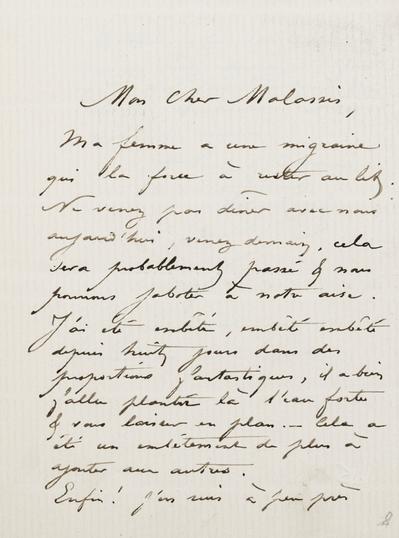 Mon cher Malassis,
Ma femme a une migraine
qui la force à rester au lit.
Ne venez pas dîner avec nous
aujourd'hui, venez demain, cela
sera probablement passé & nous
pourrons jaboter à notre aise.
J'ai été embêté, embêté embêté
depuis huit jours dans des
proportions fantastiques, il a bien
fallu planter là l'eau forte
& vous laisser en plan. — Cela a
été un embêtement de plus à
ajouter aux autres.
Enfin! j'en suis à peu près